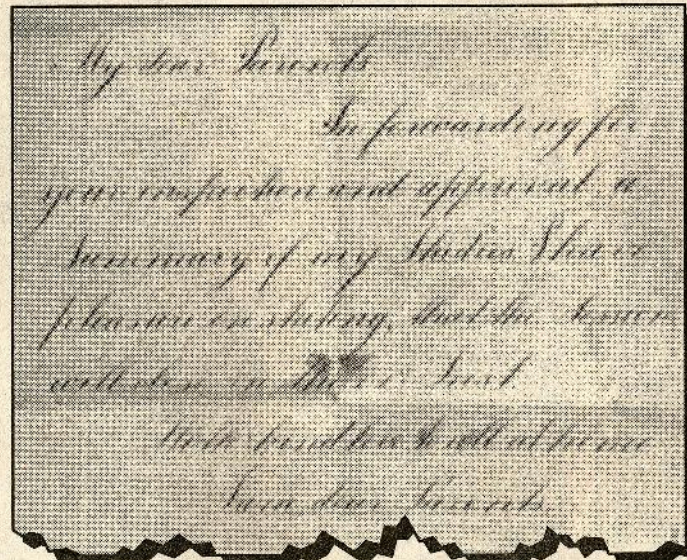 My dear Parents
In forwarding for
your inspection and approval a
Summary of my Studies I have
pleasure in stating, that the Session
will close on the inst
With kind love to all at home
I am, dear Parents